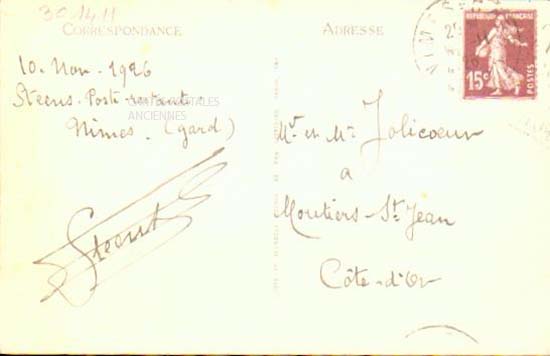 30.14.11
CORRESPONDANCE
10. Nov. 1926
Steens. Poste-restante.
Nîmes. (gard)
CARTES POSTALES
ANCIENNES
Steens
ADRESSE
REPUBLIQUE FRANÇAISE
15c
POSTES
NIMES
Mr et Me Jolicoeur
a
Moutiers-St-Jean
Côte-d'Or